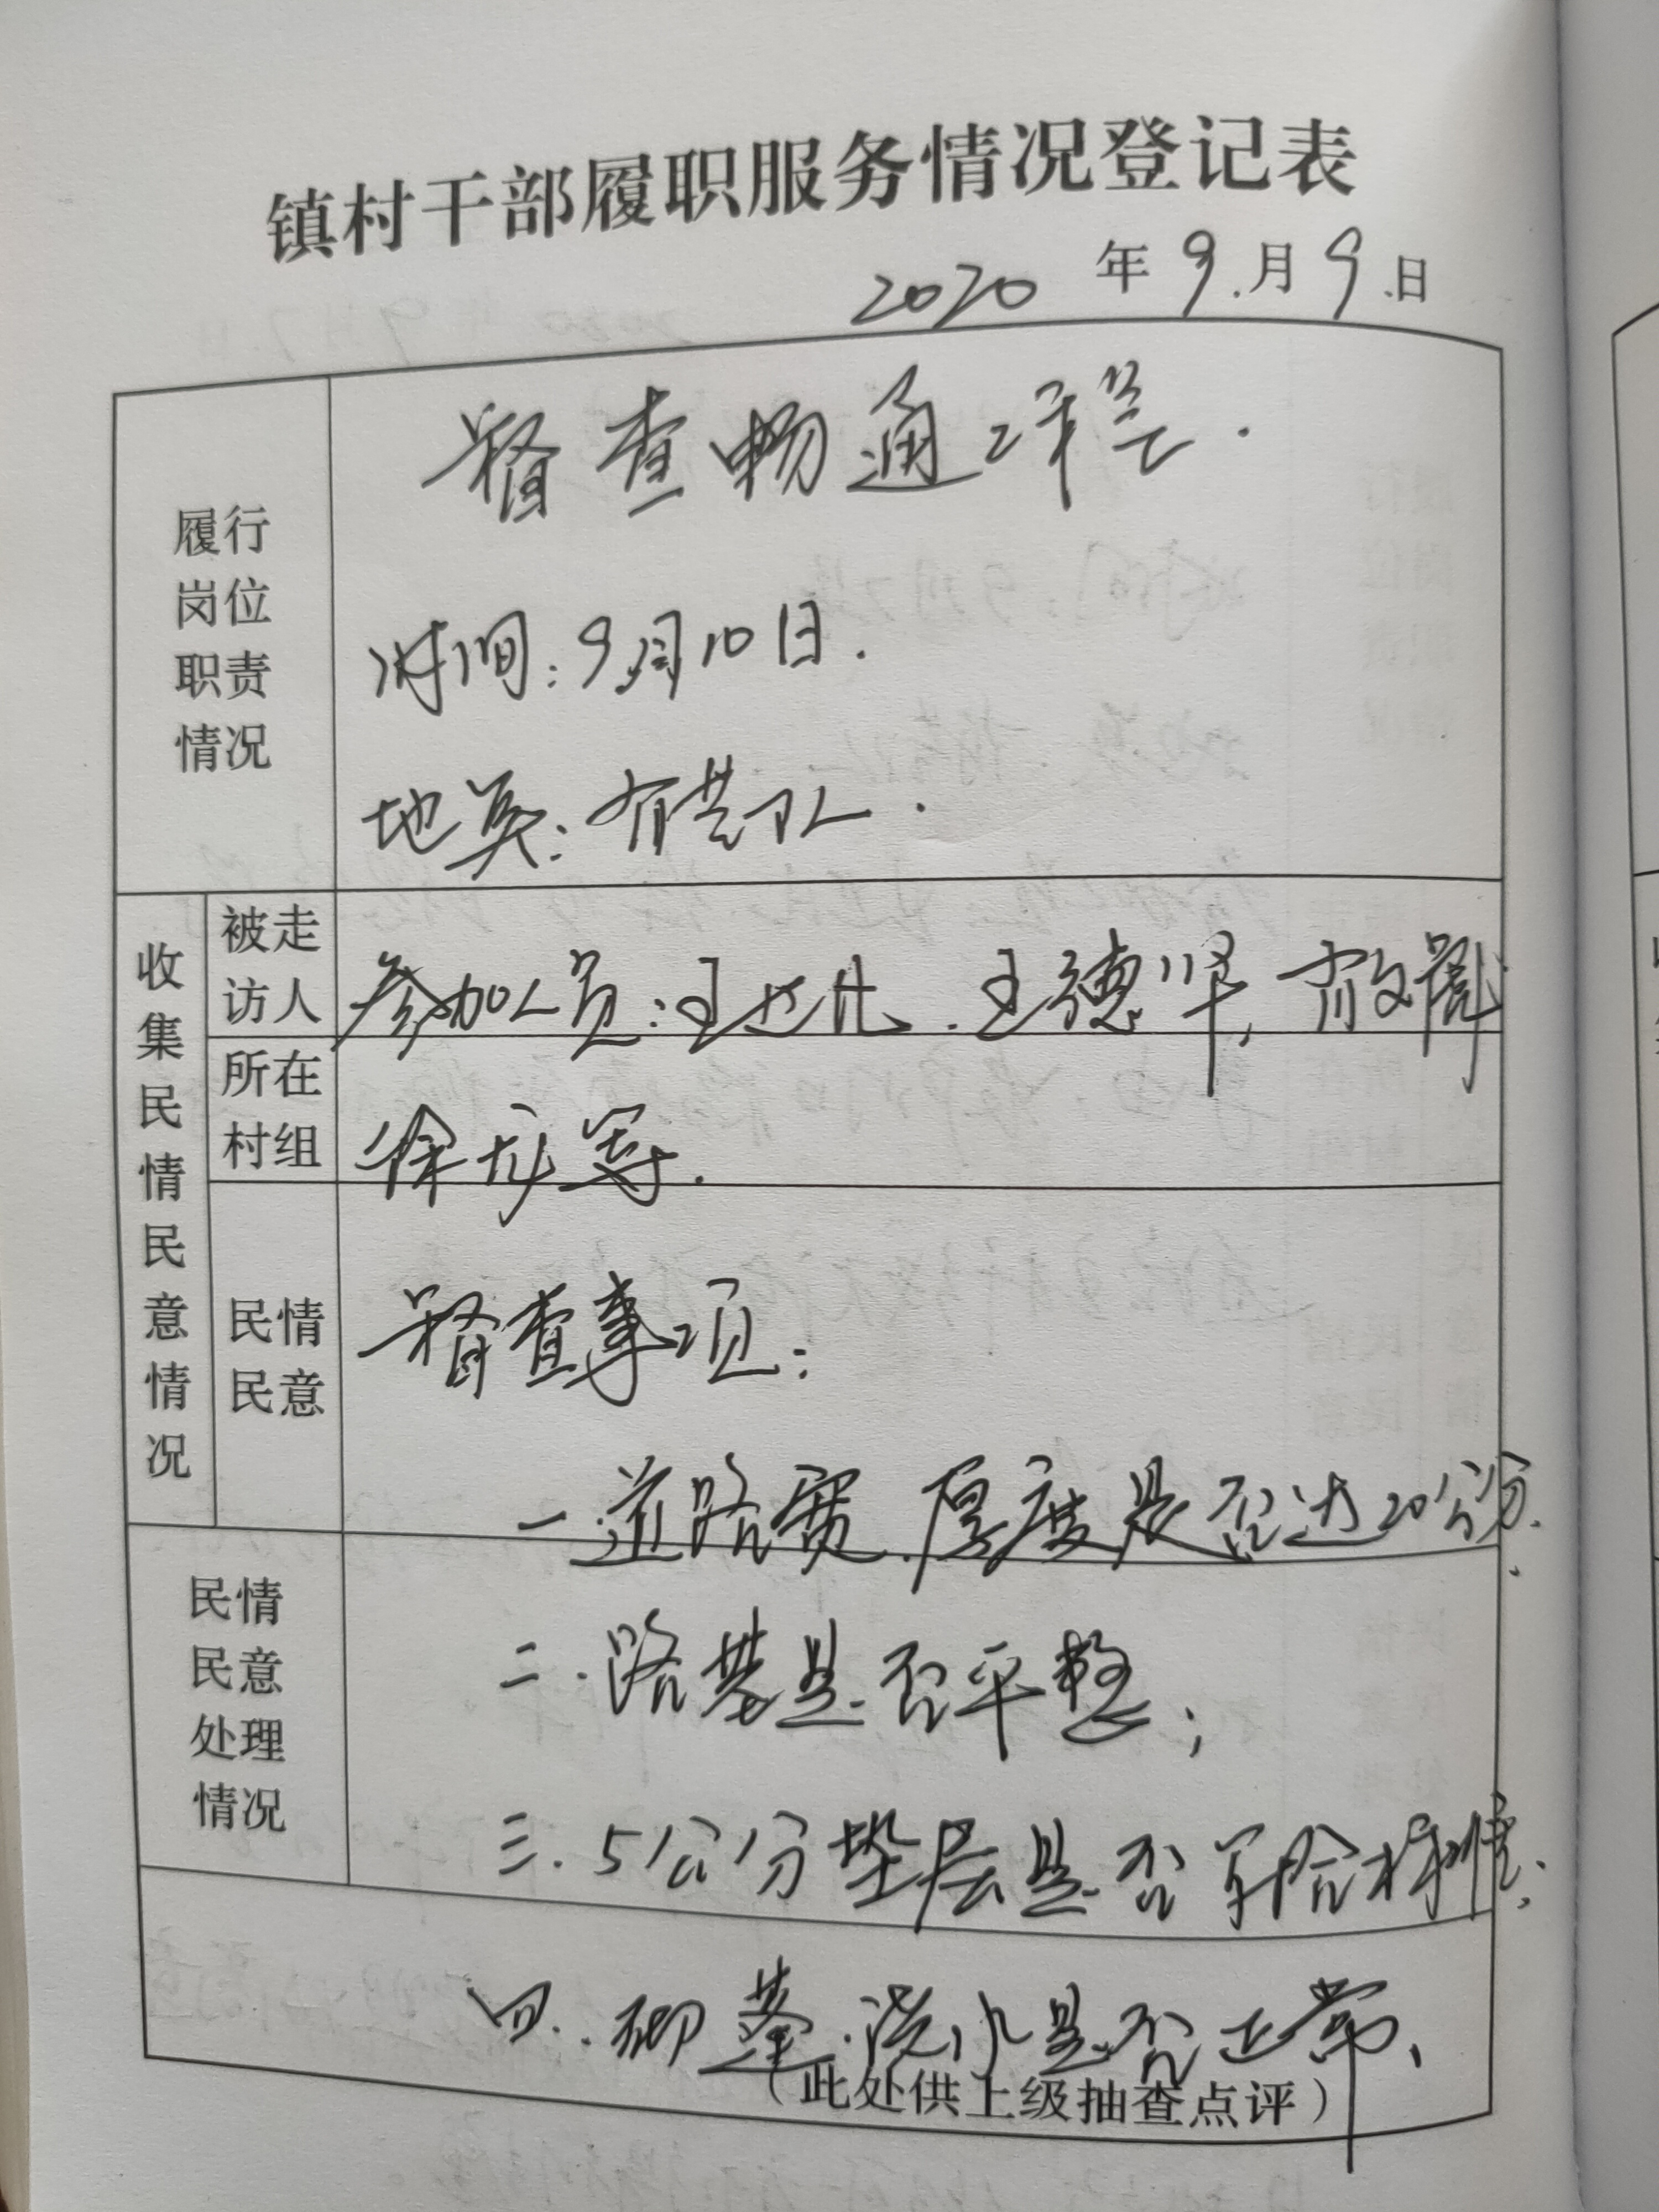 镇村干部履职服务情况登记表
2020年9月9日
履行
岗位
职责
情况
督查畅通工程.
时间:9月10日.
地点:
收集民情民意情况
被走
访人
参加人员:王 王德坚,
所在
村组
徐龙等.
民情
民意
督查事项:
一.道路宽.厚度是否达20公分.
民情
民意
处理
情况
二.路基是否平整;
三.5公分垫层是否符合标准;
四. 浇水是否正常、
(此处供上级抽查点评)